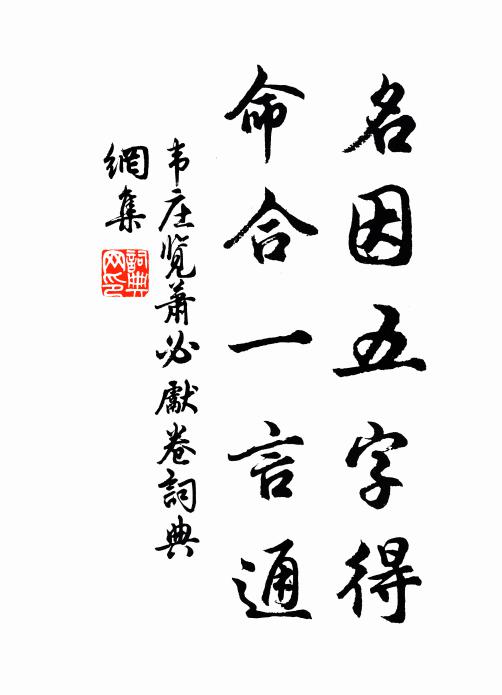 名因五字得
命合一言通
韦庄览萧必献卷词典
網集
詞典网印